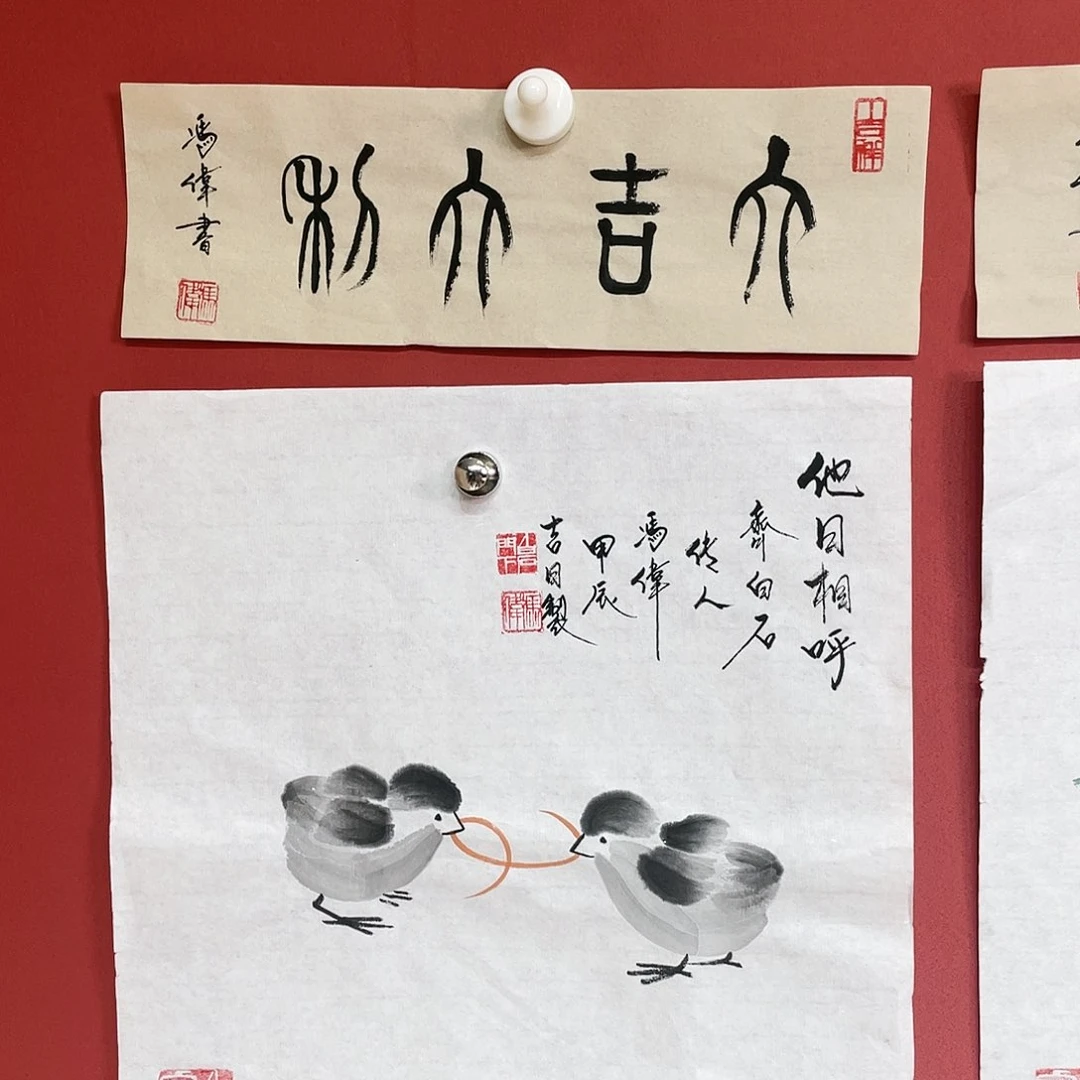 大吉大利
馮偉書
馮偉
他日相呼
齊白石
传人
馮偉
甲辰
吉日製
馮偉